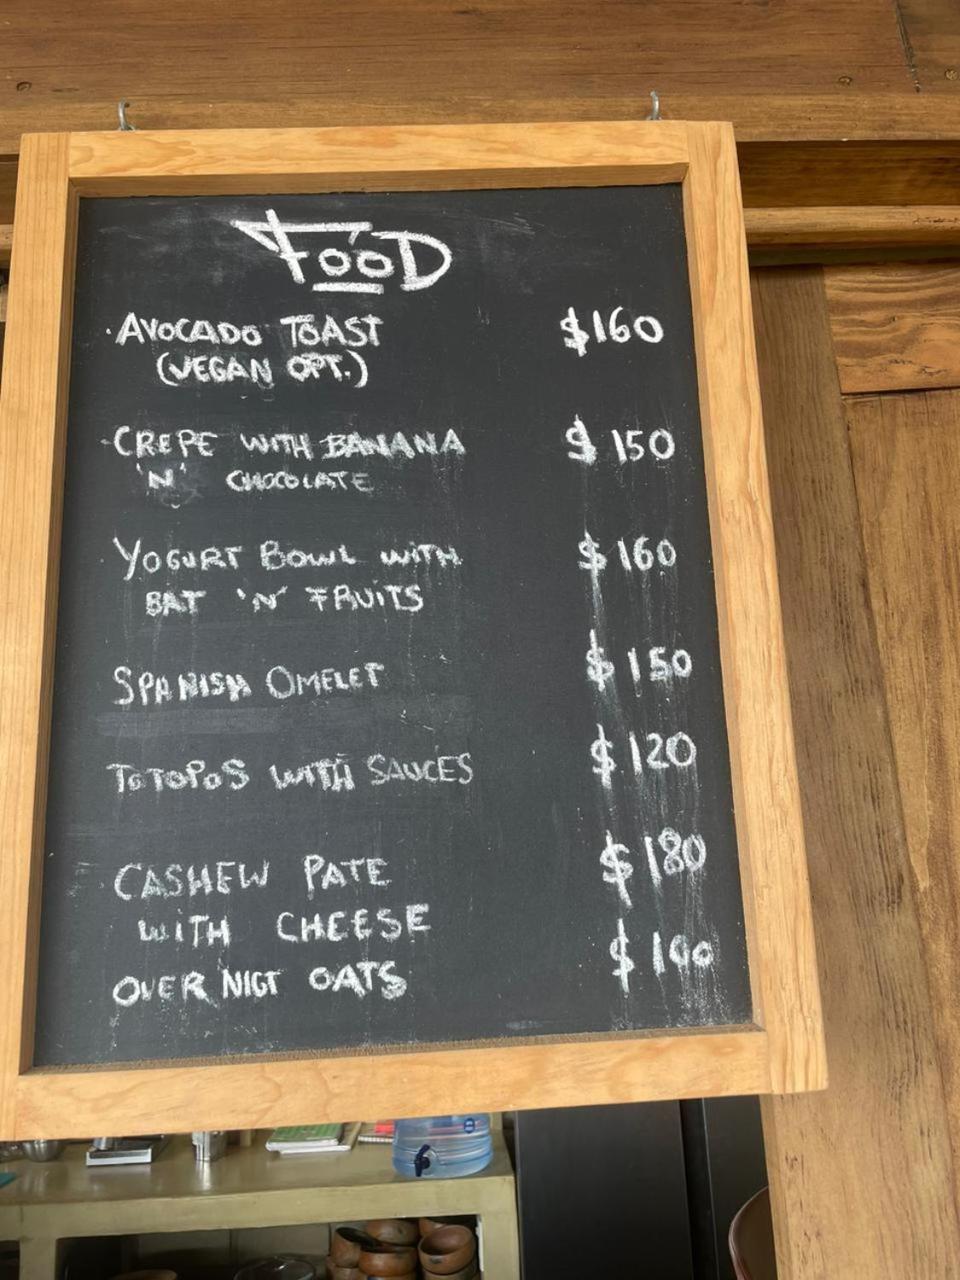 FOOD
· AVOCADO TOAST $160
(VEGAN OPT.)
· CREPE WITH BANANA $150
'N' CHOCOLATE
· YOGURT BOWL WITH $160
BAT 'N' FRUITS
SPANISH OMELET $150
TOTOPOS WITH SAUCES $120
CASHEW PATE $180
WITH CHEESE
OVER NIGT OATS